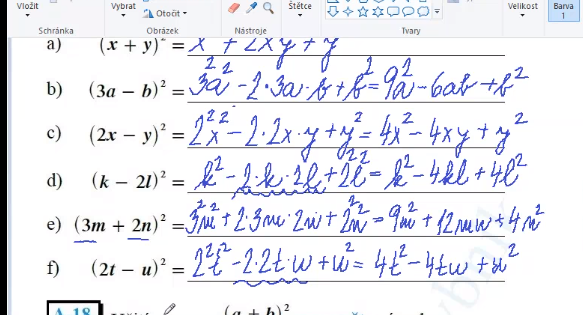 Vložit Vybrat Štětce Velikost Barva
Otočit 1
Schránka Obrázek Nástroje Tvary
a) (x + y)² = x² + 2xy + y²
b) (3a − b)² = 3²a² − 2·3a·b + b² = 9a² − 6ab + b²
c) (2x − y)² = 2²x² − 2·2x·y + y² = 4x² − 4xy + y²
d) (k − 2l)² = k² − 2·k·2l + 2²l² = k² − 4kl + 4l²
e) (3m + 2n)² = 3²m² + 2·3m·2n + 2²n² = 9m² + 12mn + 4n²
f) (2t − u)² = 2²t² − 2·2t·u + u² = 4t² − 4tu + u²
A 18 (a + b)²